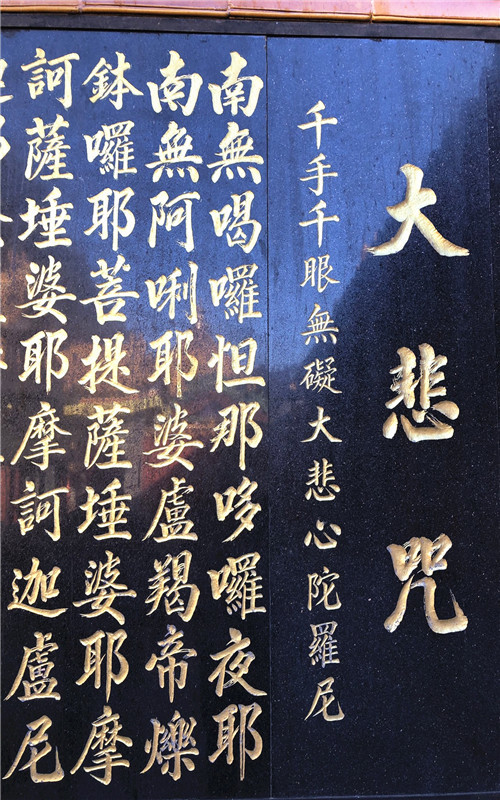 大悲咒
千手千眼無礙大悲心陀羅尼
南無喝囉怛那哆囉夜耶
南無阿唎耶婆盧羯帝爍
鉢囉耶菩提薩埵婆耶摩
訶薩埵婆耶摩訶迦盧尼